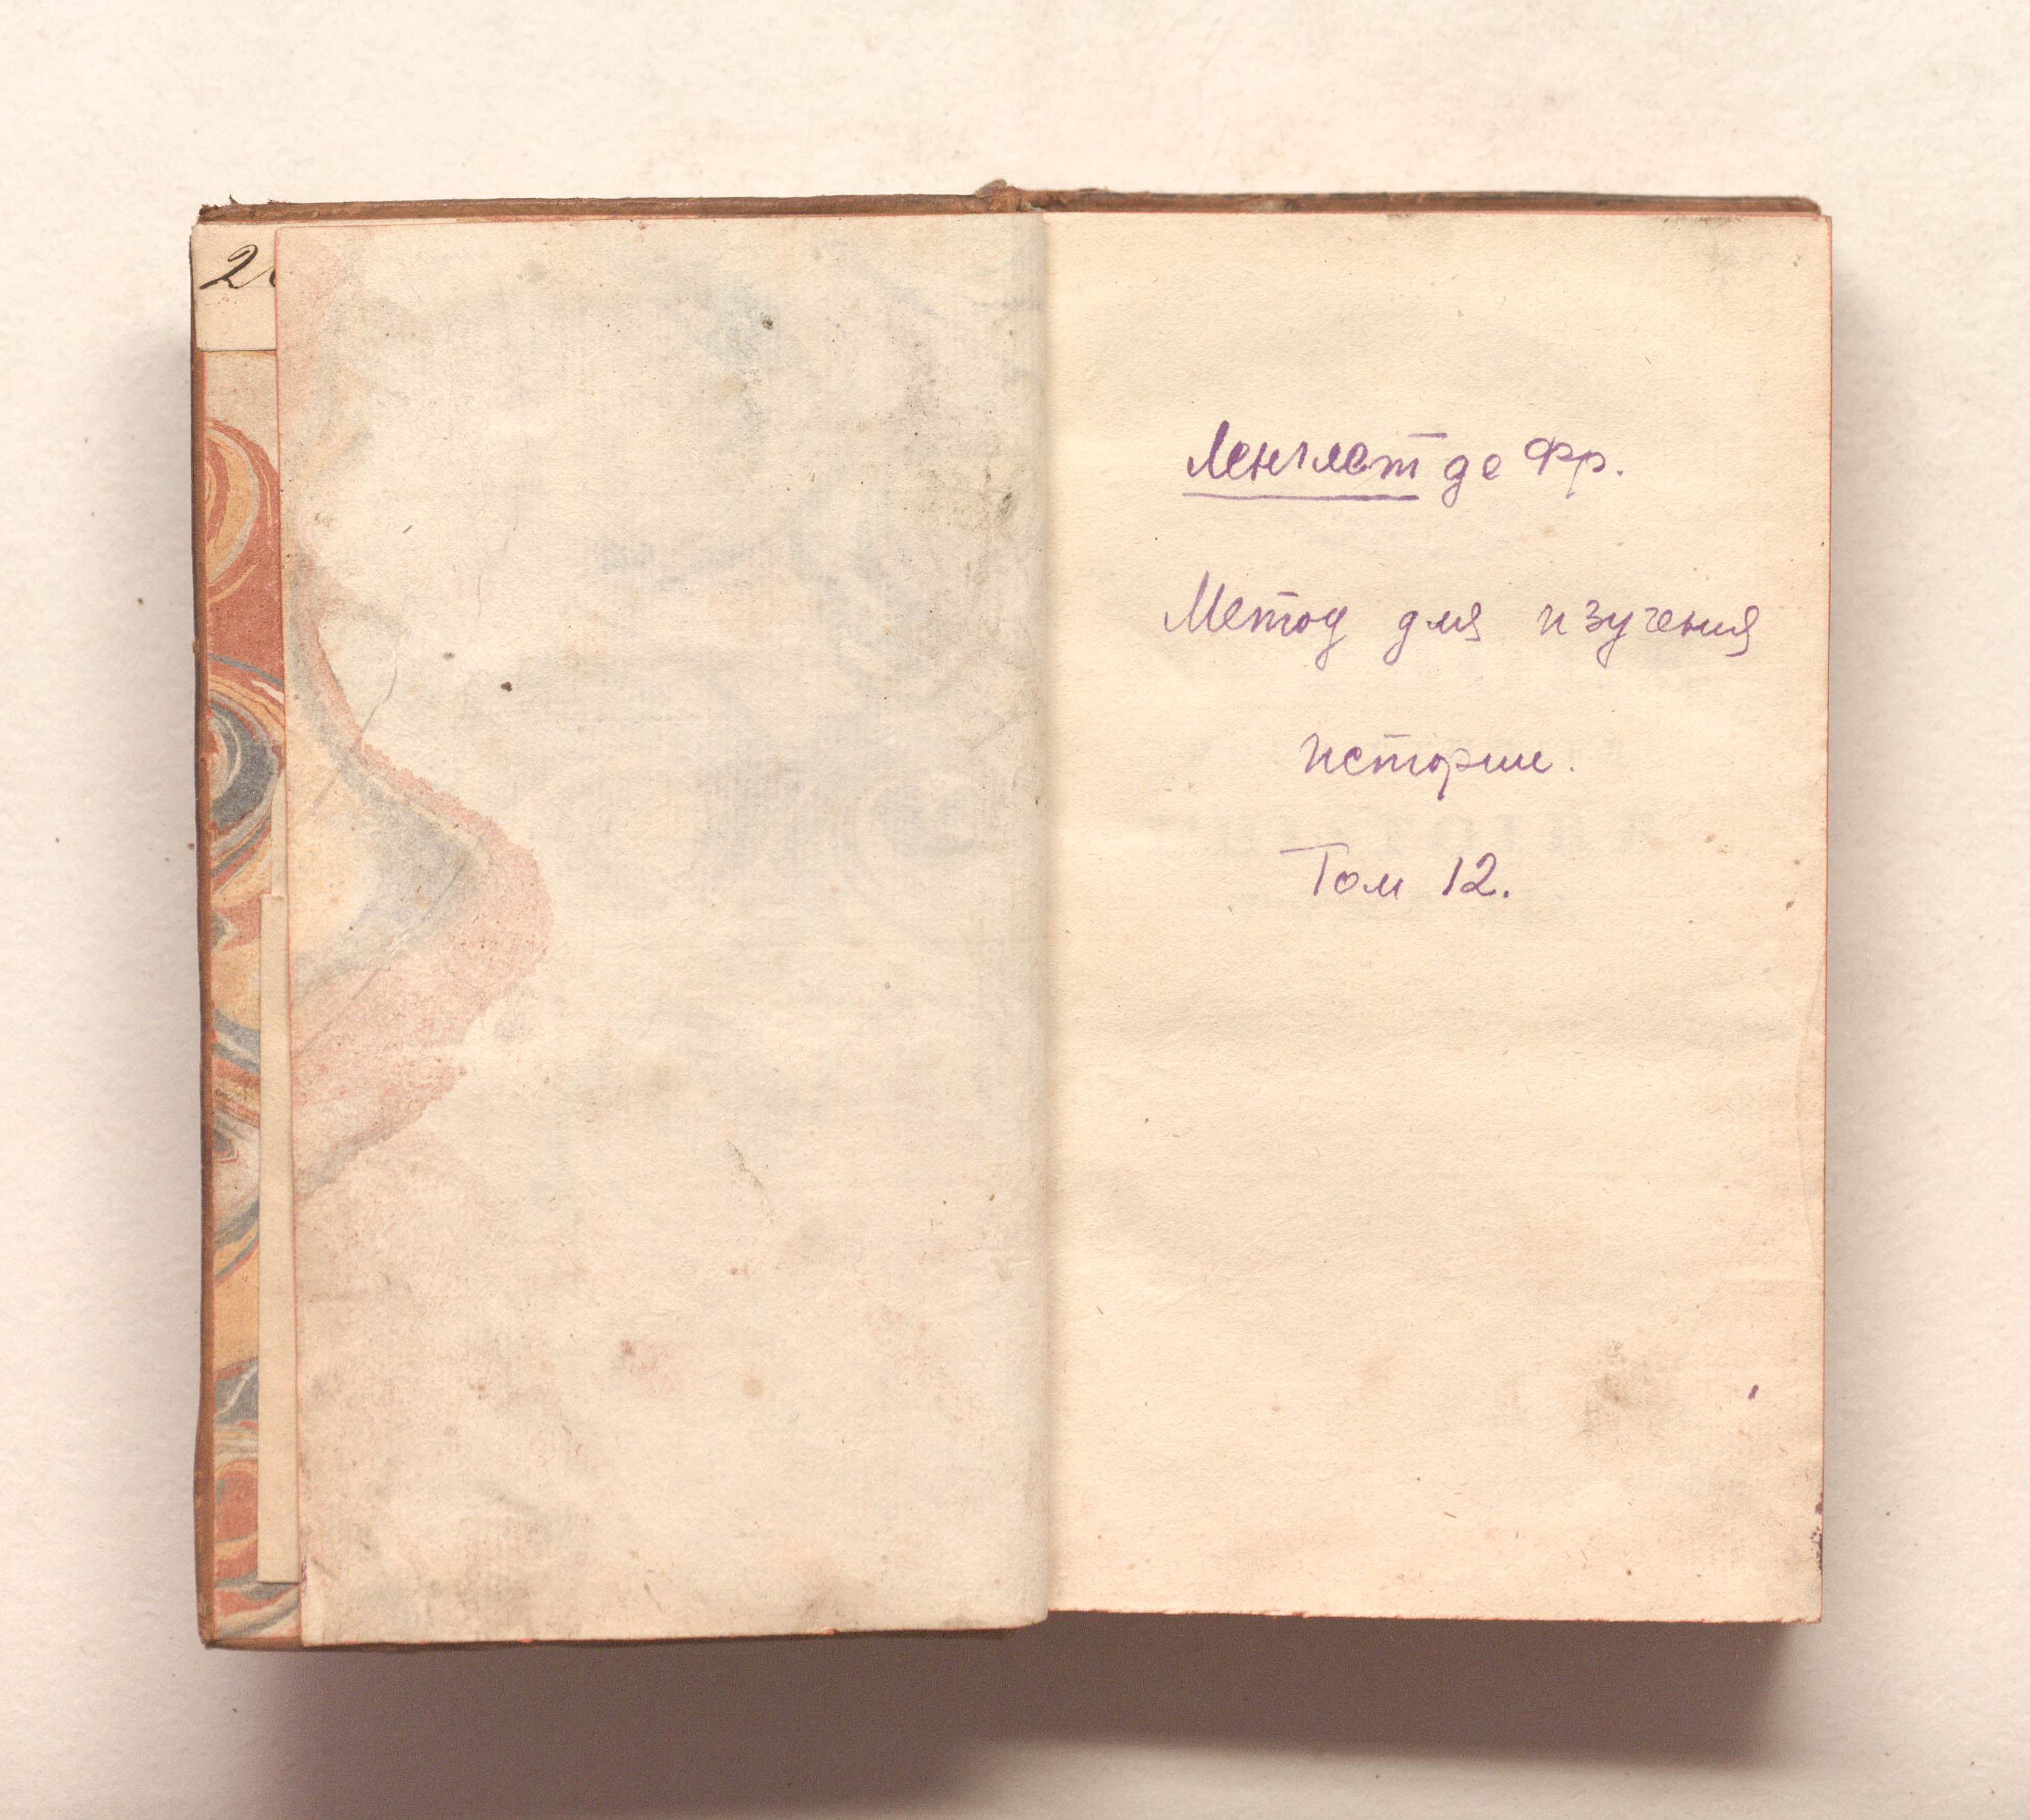 Ленглет де Фр.
Метод для изучения
истории.
Том 12.